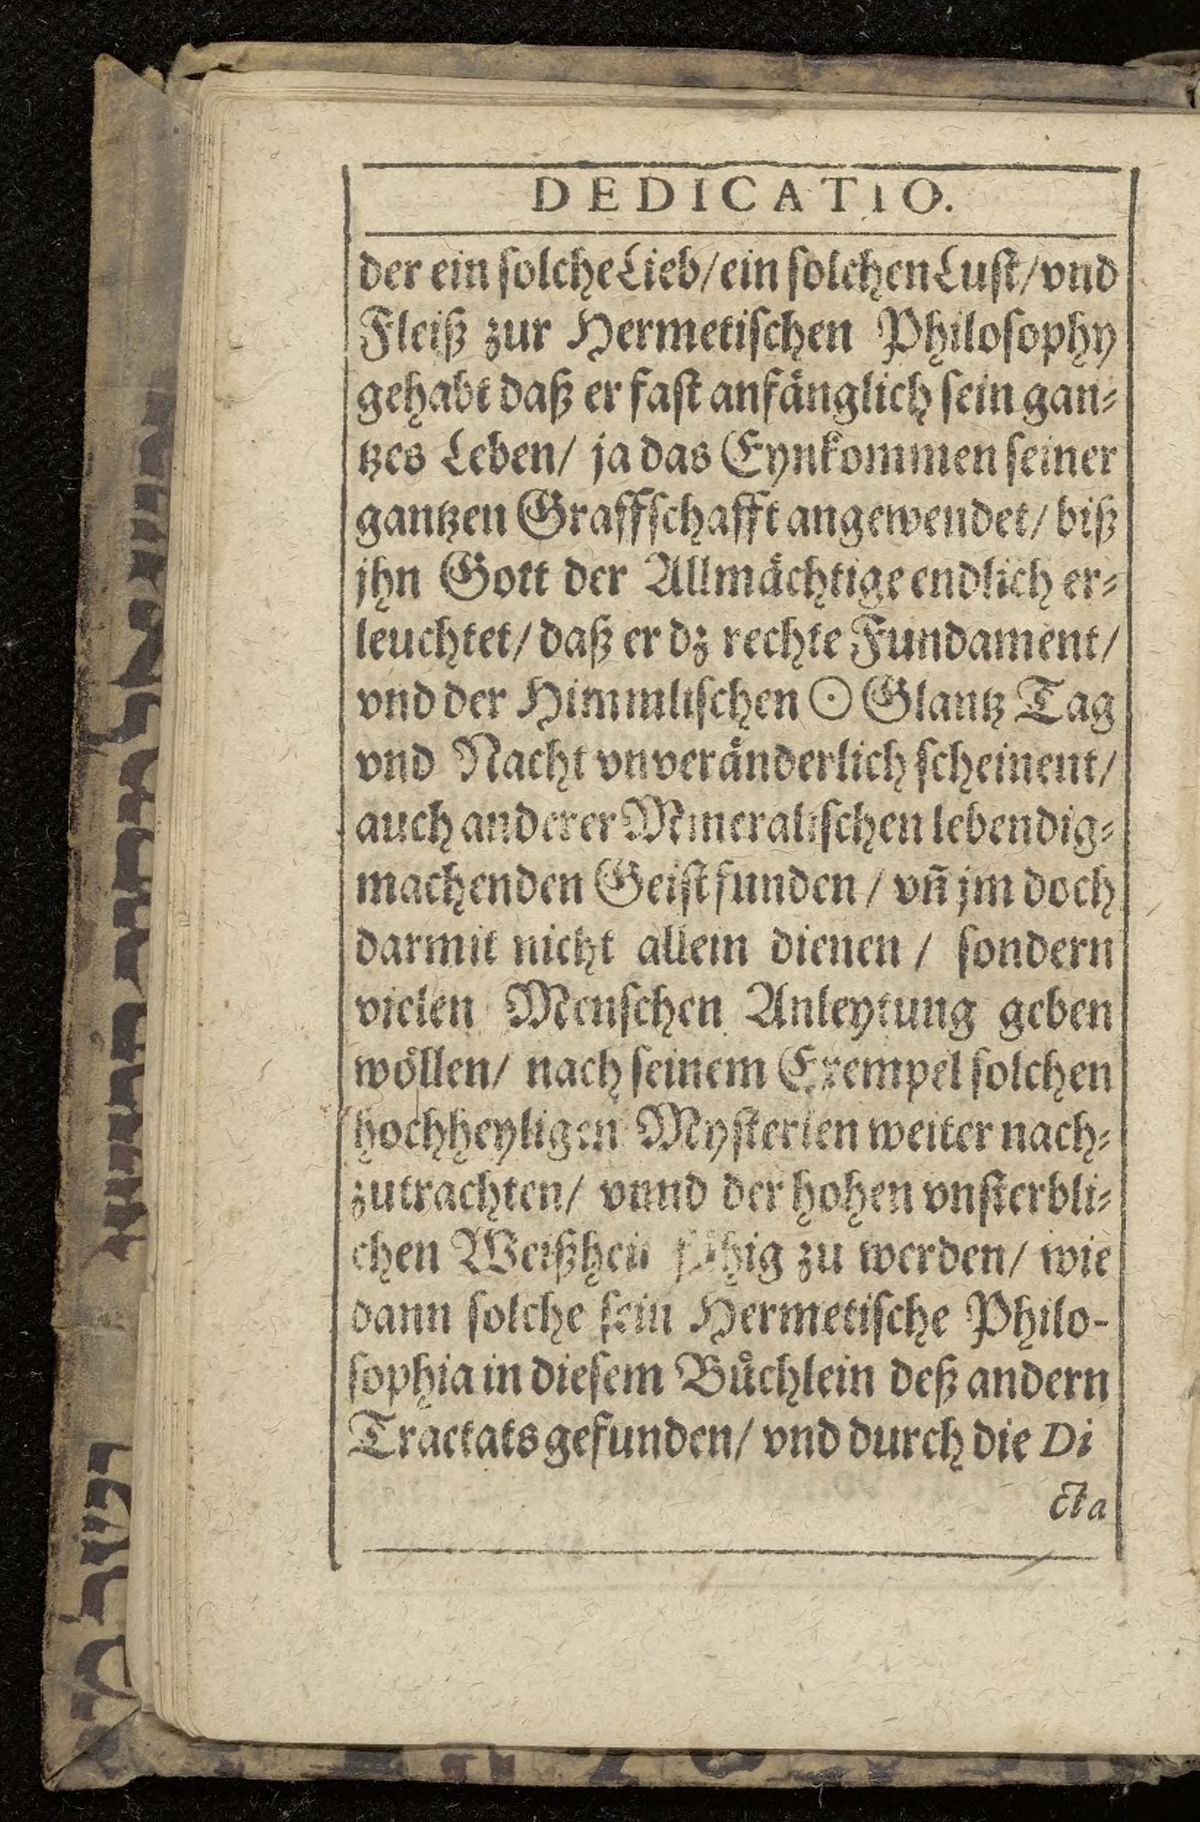 DEDICATIO.
der ein solche Lieb/ ein solchen Lust/ vnd
Fleiß zur Hermetischen Philosophy
gehabt daß er fast anfänglich sein gan-
tzes Leben/ ja das Eynkommen seiner
gantzen Graffschafft angewendet/ biß
jhn Gott der Allmächtige endlich er-
leuchtet/ daß er dz rechte Fundament/
vnd der Himmlischen ☉ Glantz Tag
vnd Nacht vnveränderlich scheinent/
auch anderer Mineralischen lebendig-
machenden Geist funden / vñ jm doch
darmit nicht allein dienen / sondern
vielen Menschen Anleytung geben
wöllen/ nach seinem Exempel solchen
hochheyligen Mysterien weiter nach-
zutrachten/ vnnd der hohen vnsterbli-
chen Weißheit fähig zu werden/ wie
dann solche sein Hermetische Philo-
sophia in diesem Büchlein deß andern
Tractats gefunden/ vnd durch die Di
cta